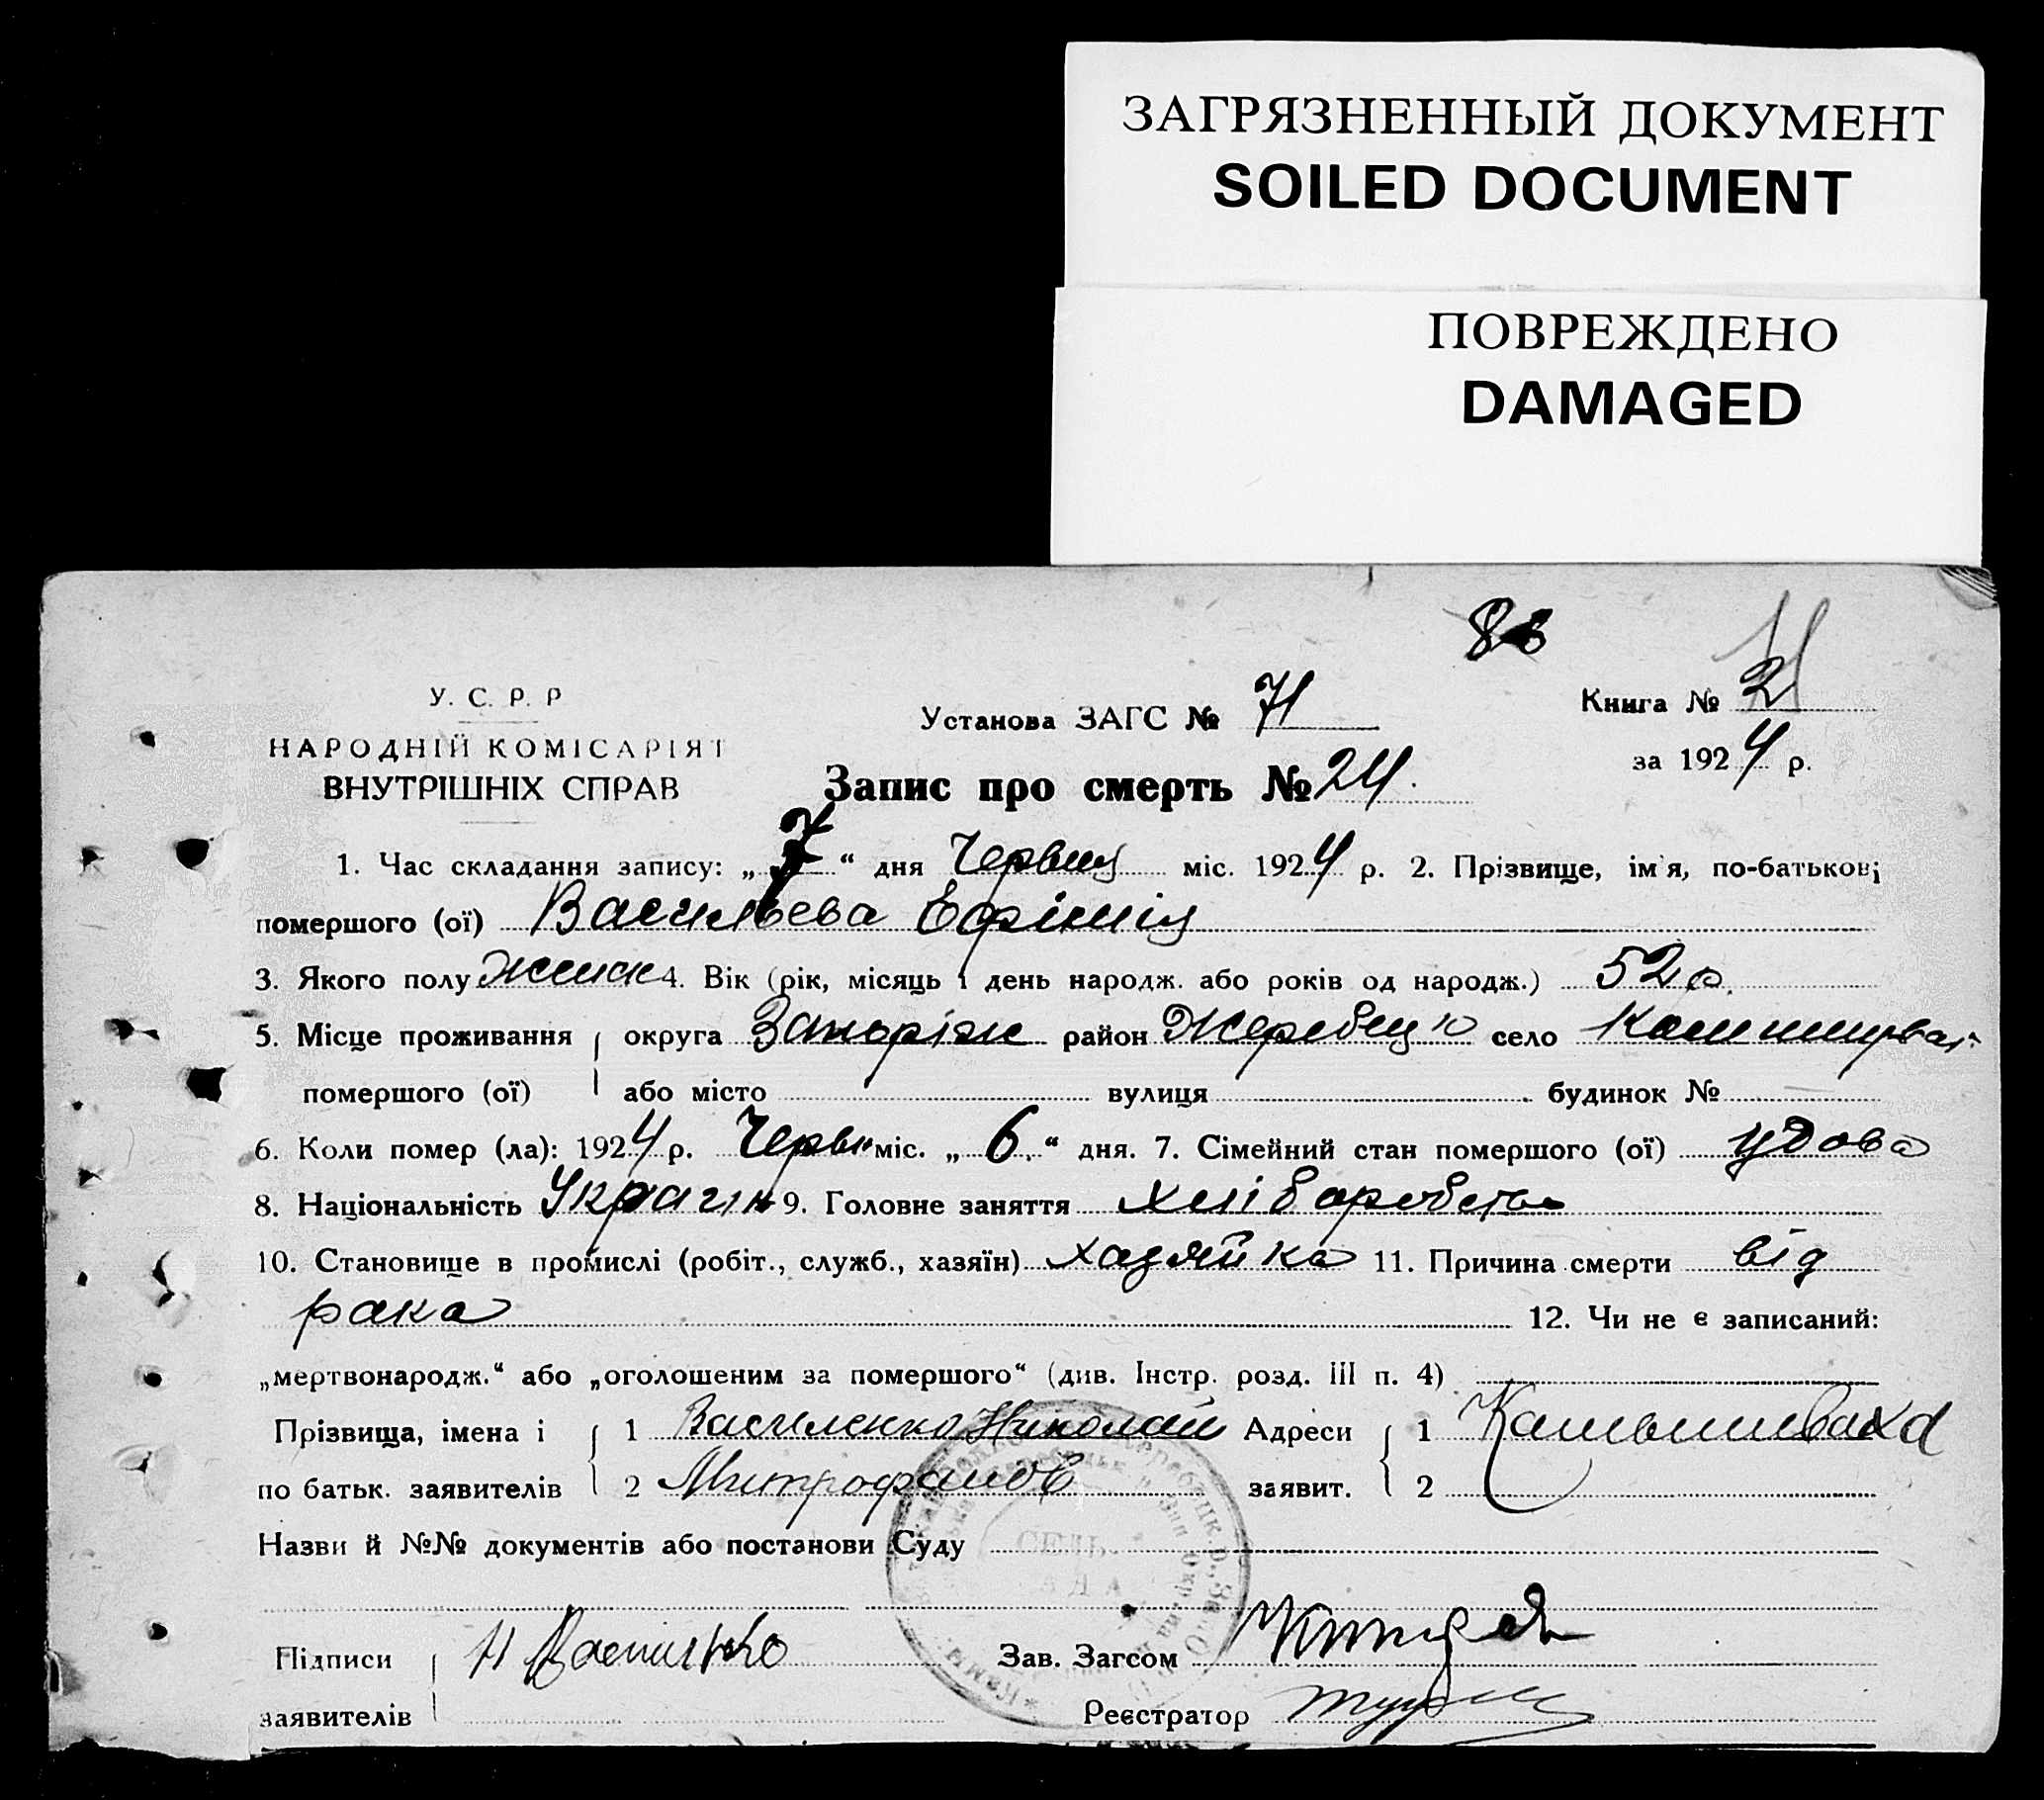 ЗАГРЯЗНЕННЫЙ ДОКУМЕНТ
SOILED DOCUMENT
ПОВРЕЖДЕНО
DAMAGED
У. С. Р. Р
НАРОДНІЙ КОМІСАРІЯТ
ВНУТРІШНІХ СПРАВ
Установа ЗАГС № 71
Книга № 2
за 1924 р.
Запис про смерть № 24.
1. Час складання запису: „ 7 “ дня Червня міс. 1924 р. 2. Прізвище, ім'я, по-батькові
помершого (ої) Васильева Ефімія
3. Якого полу женск 4. Вік (рік, місяць і день народж. або років од народж.) 52 р.
5. Місце проживання округа Запоріж район Жеребец село Камишуват
помершого (ої) або місто вулиця будинок №
6. Коли помер (ла): 1924 р. Червн міс. „ 6 “ дня. 7. Сімейний стан помершого (ої) удова
8. Національність Україн 9. Головне заняття хліборобство
10. Становище в промислі (робіт., служб., хазяїн) хазяйка 11. Причина смерти від
рака 12. Чи не є записаний:
„мертвонародж.“ або „оголошеним за помершого“ (див. Інстр. розд. III п. 4)
Прізвища, імена і 1 Василенко Николай Адреси 1 Камышеваха
по батьк. заявителів 2 Митрофанов заявит. 2
Назви й №№ документів або постанови Суду
Підписи Н Василенко Зав. Загсом
заявителів Реєстратор